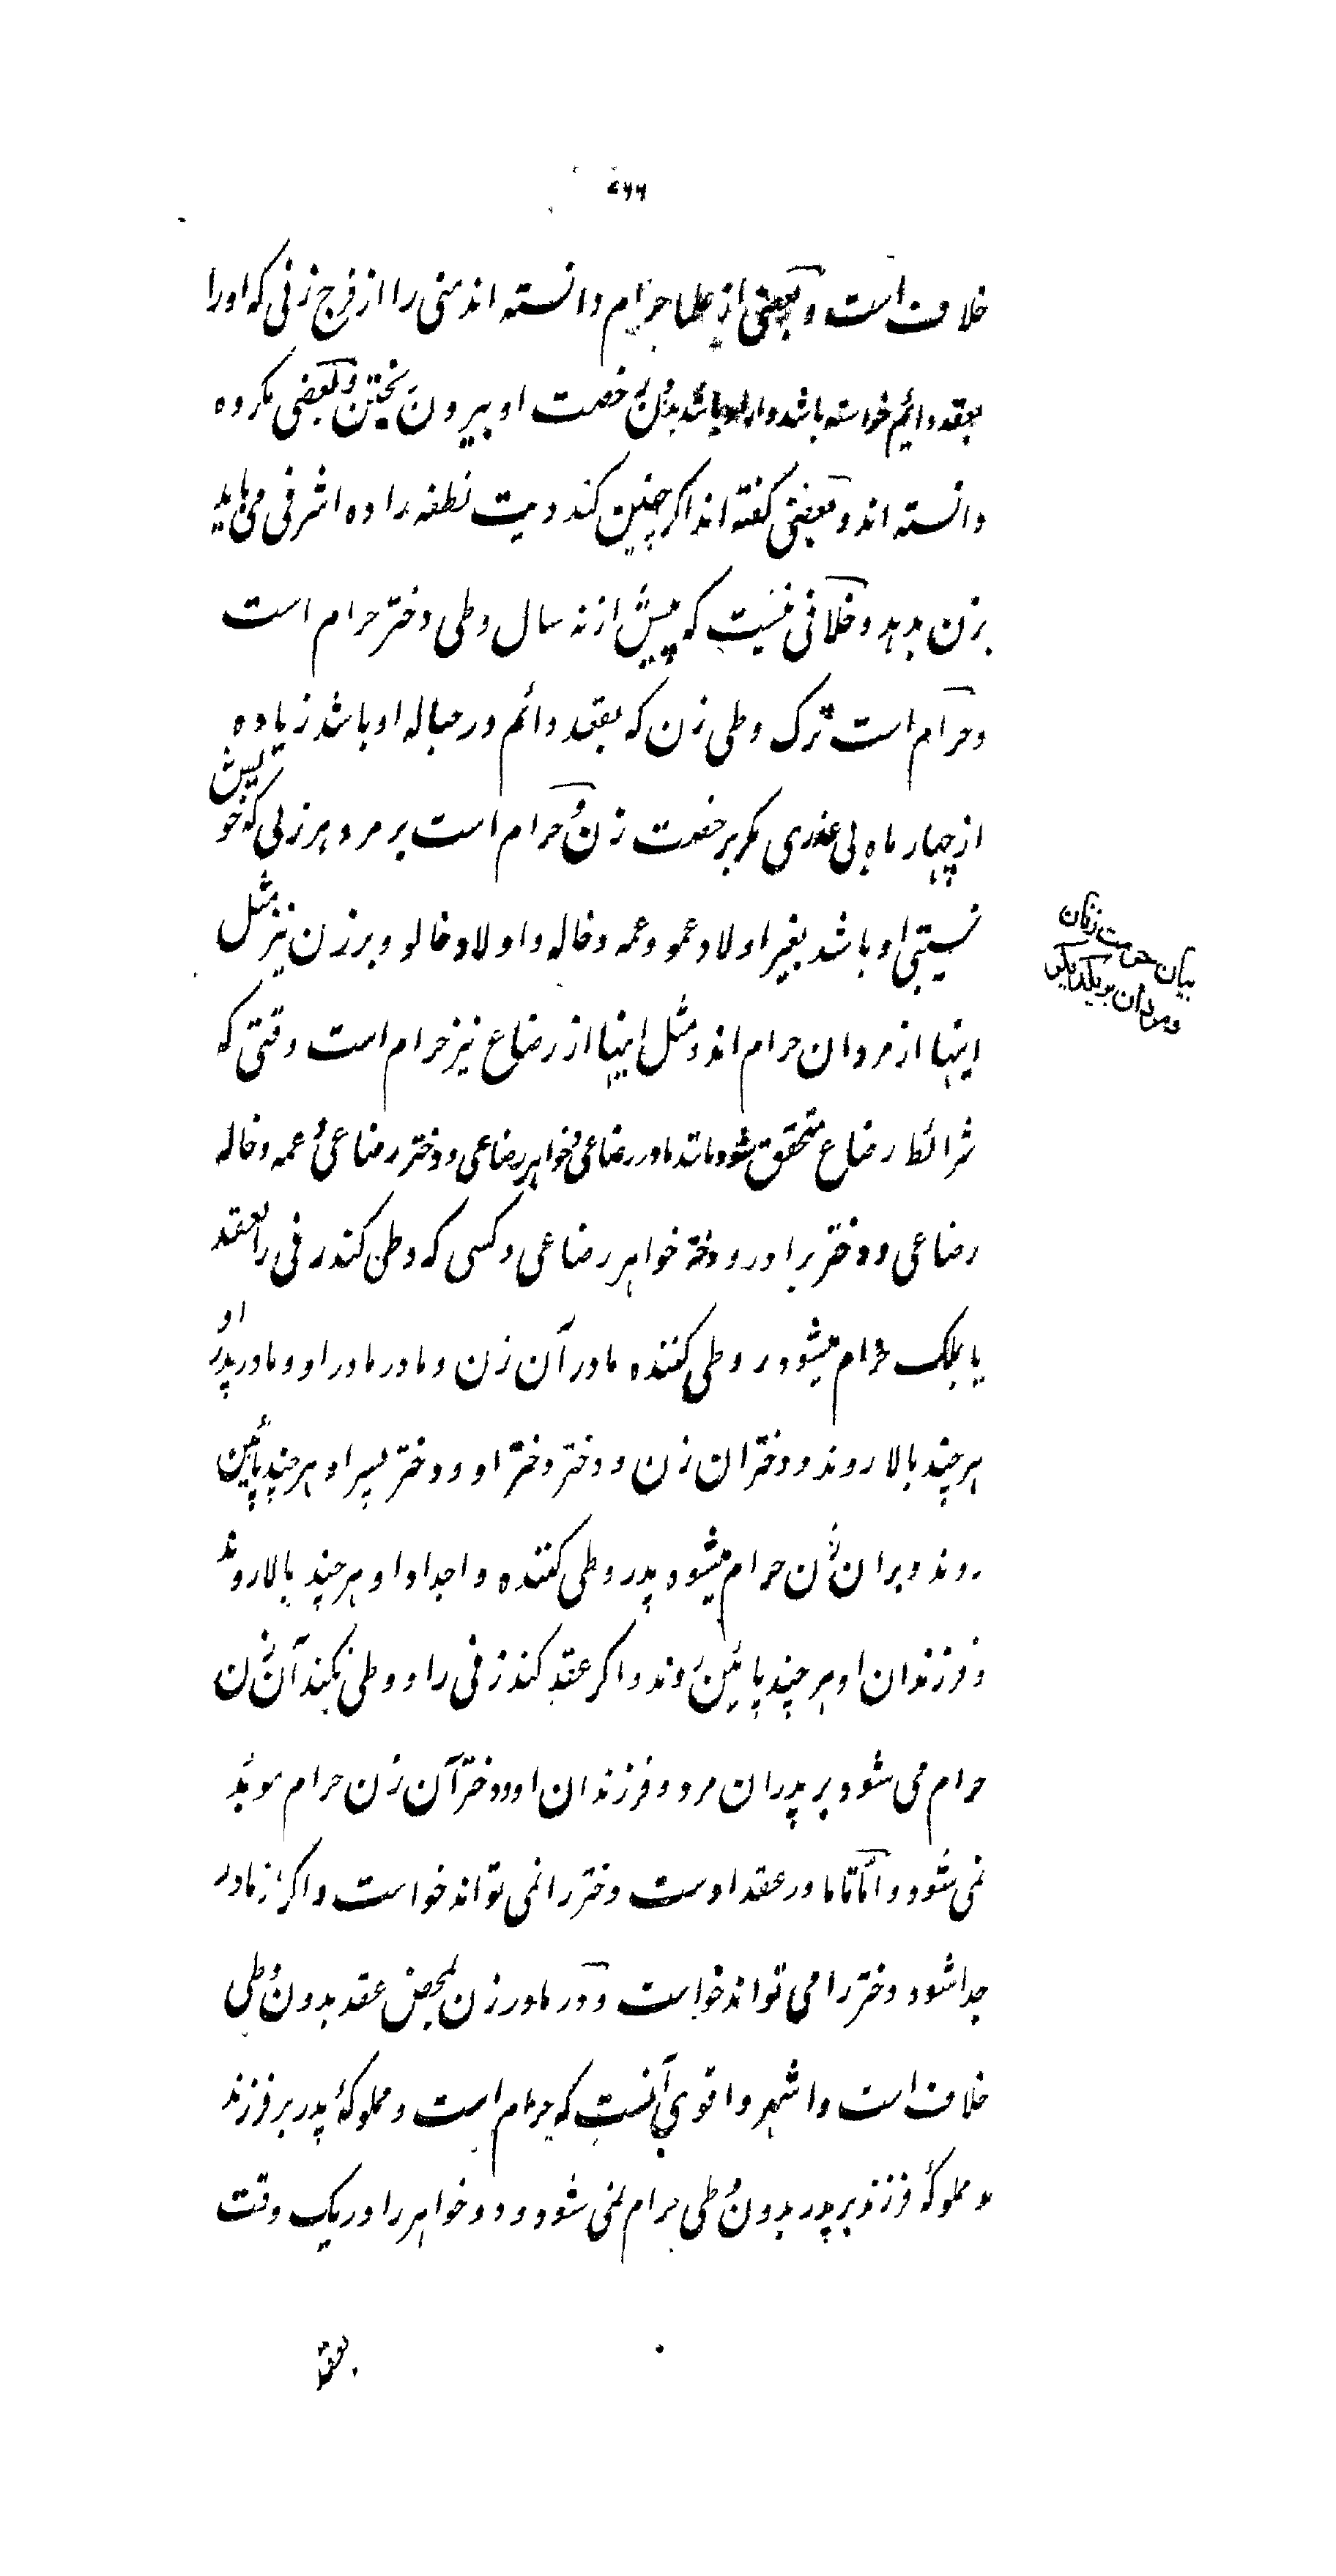 ۲۶۶
خلاف است و بعضی از علما حرام دانسته اند منی را از فرج زنی که او را
بعقد دائم خواسته باشد و باشد بدون رخصت او بیرون ریختن و بعضی مکروه
دانسته اند و بعضی گفته اند اگر چنین کند دیت نطفه را ده اشرفی می باید
بزن بدهد و خلافی نیست که پیش از نه سال وطی دختر حرام است
و حرام است ترک وطی زن که بعقد دائم در حباله او باشد زیاده
از چهار ماه بی عذری مگر برخصت زن و حرام است بر مرد هر زنی که خویش
نسبتی او باشد بغیر اولاد عمو و عمه و خاله و اولاد خالو و بر زن نیز مثل
بیان حرمت زنان
و مردان بر یکدیگر
اینها از مردان حرام اند و مثل اینها از رضاع نیز حرام است وقتی که
شرائط رضاع متحقق شود مانند مادر رضاعی و خواهر رضاعی و دختر رضاعی و عمه و خاله
رضاعی و دختر برادر و دختر خواهر رضاعی و کسی که وطی کند زنی را بعقد
یا بملک حرام میشود بر وطی کننده مادر آن زن و مادر مادر او و مادر پدر او
هر چند بالا روند و دختران زن و دختر دختر او و دختر پسر او هر چند پائین
روند و بر آن زن حرام میشود پدر وطی کننده و اجداد او هر چند بالا روند
و فرزندان او هر چند پائین روند و اگر عقد کند زنی را و وطی نکند آن زن
حرام می شود بر پدران مرد و فرزندان او و دختر آن زن حرام موبد
نمی شود و اما تا مادر عقد اوست دختر را نمی تواند خواست و اگر از مادر
جدا شود دختر را می تواند خواست و در مادر زن بمحض عقد بدون وطی
خلاف است و اشهر و اقوی آنست که حرام است و مملوکهٔ پدر بر فرزند
و مملوکهٔ فرزند بر پدر بدون وطی حرام نمی شود و دو خواهر را در یک وقت